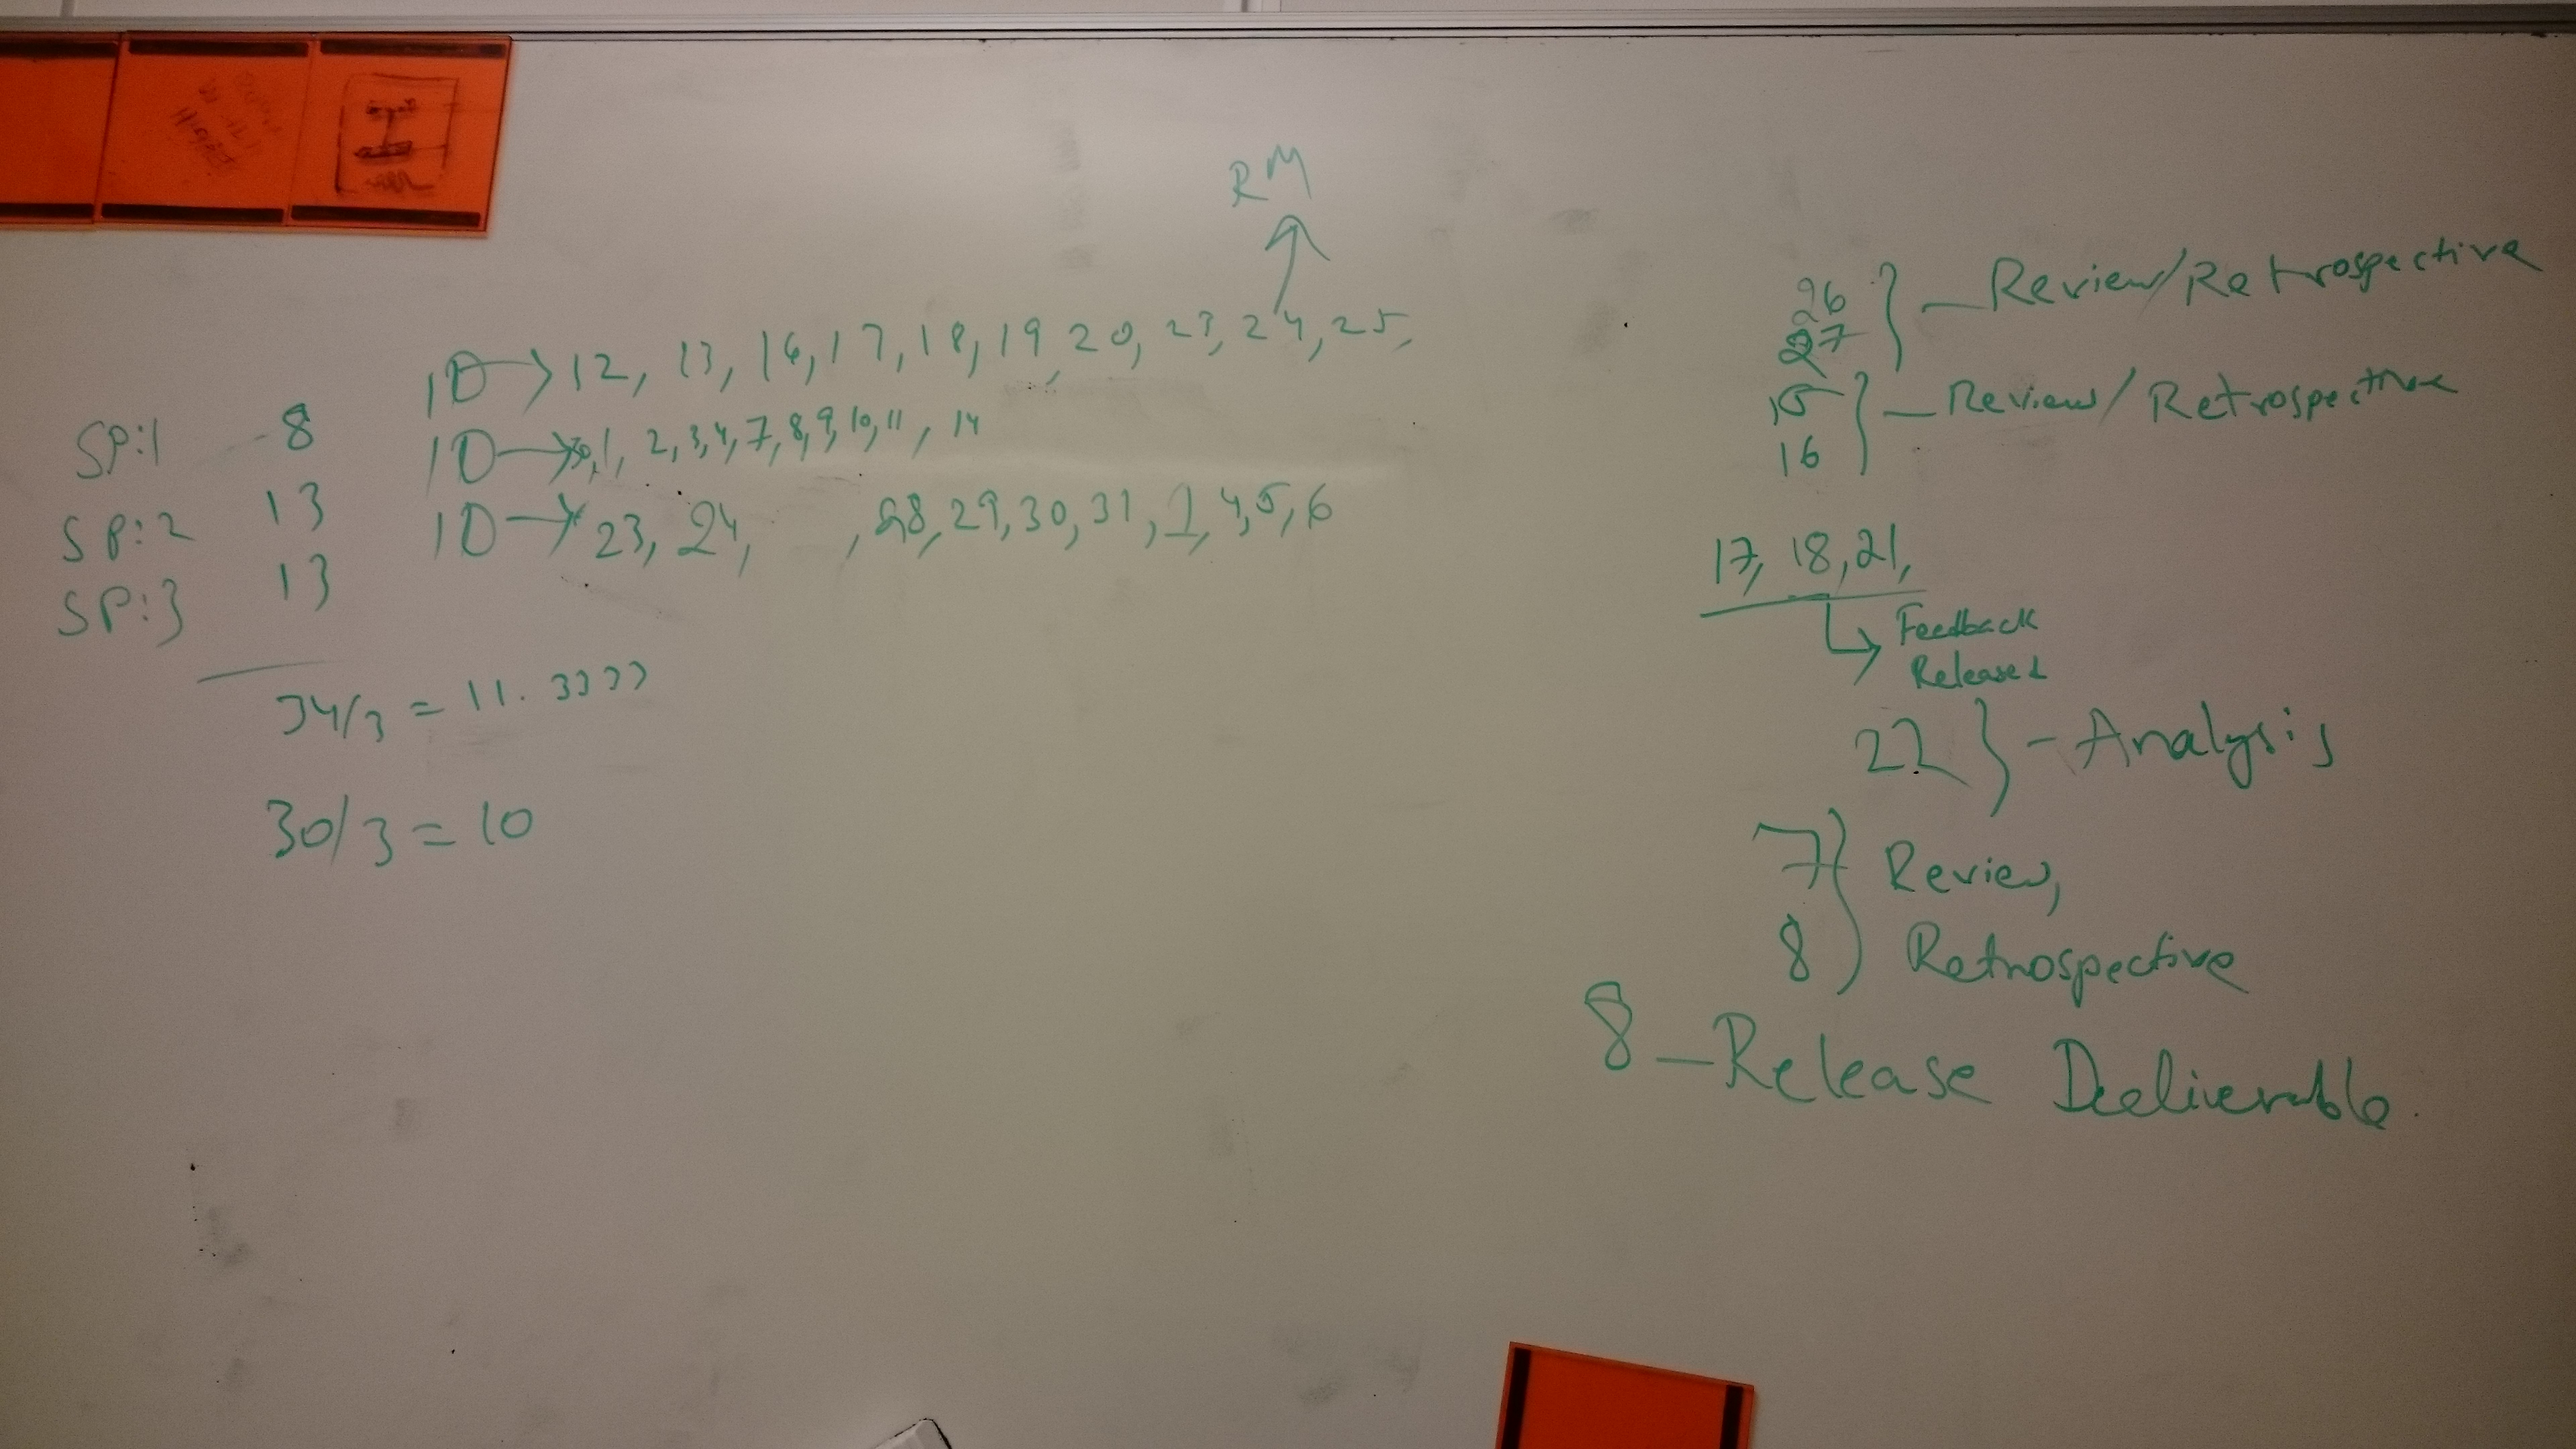 RM
10 → 12, 13, 16, 17, 18, 19, 20, 23, 24, 25,
10 → 30, 1, 2, 3, 4, 7, 8, 9, 10, 11, 14
10 → 23, 24, , 28, 29, 30, 31, 1, 4, 5, 6
SP:1 - 8
SP:2 13
SP:3 13
34/3 = 11.3333
30/3 = 10
26
27 } - Review/Retrospective
15
16 } - Review/Retrospective
17, 18, 21,
Feedback
Released
22 } - Analysis
7 } Review,
8 } Retrospective
8 - Release Deeliverable